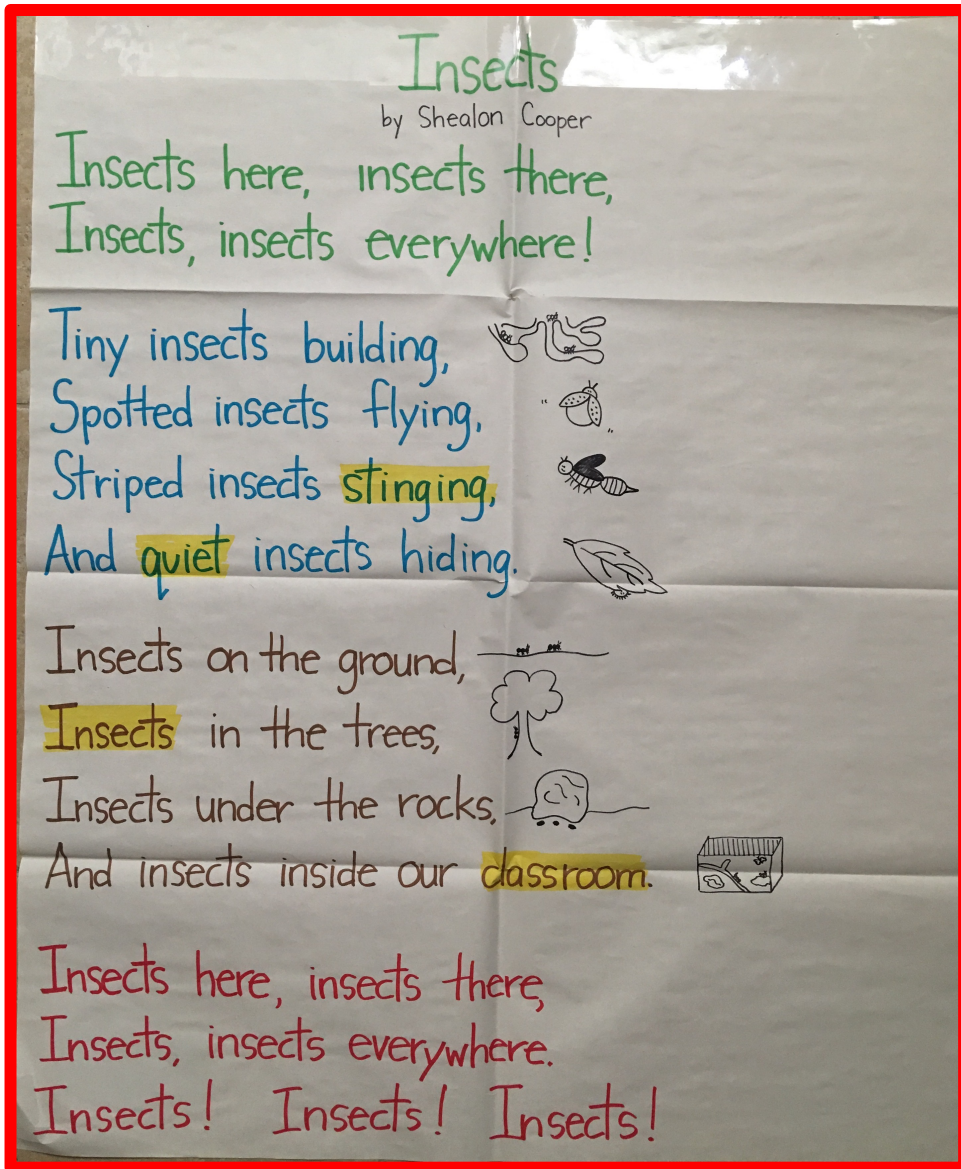 Insects
by Shealon Cooper
Insects here, insects there,
Insects, insects everywhere!
Tiny insects building,
Spotted insects flying,
Striped insects stinging,
And quiet insects hiding.
Insects on the ground,
Insects in the trees,
Insects under the rocks,
And insects inside our classroom.
Insects here, insects there,
Insects, insects everywhere.
Insects! Insects! Insects!